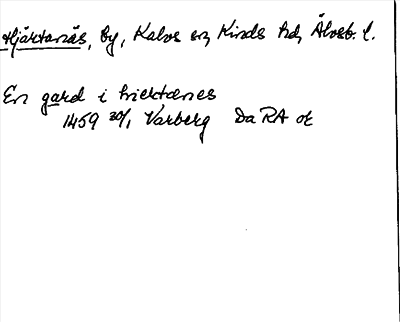 Hjärtanäs, by, Kalvs sn, Kinds hd, Älvsb. l.
En gard i hiertanes
1459 20/1 Varberg Da RA or